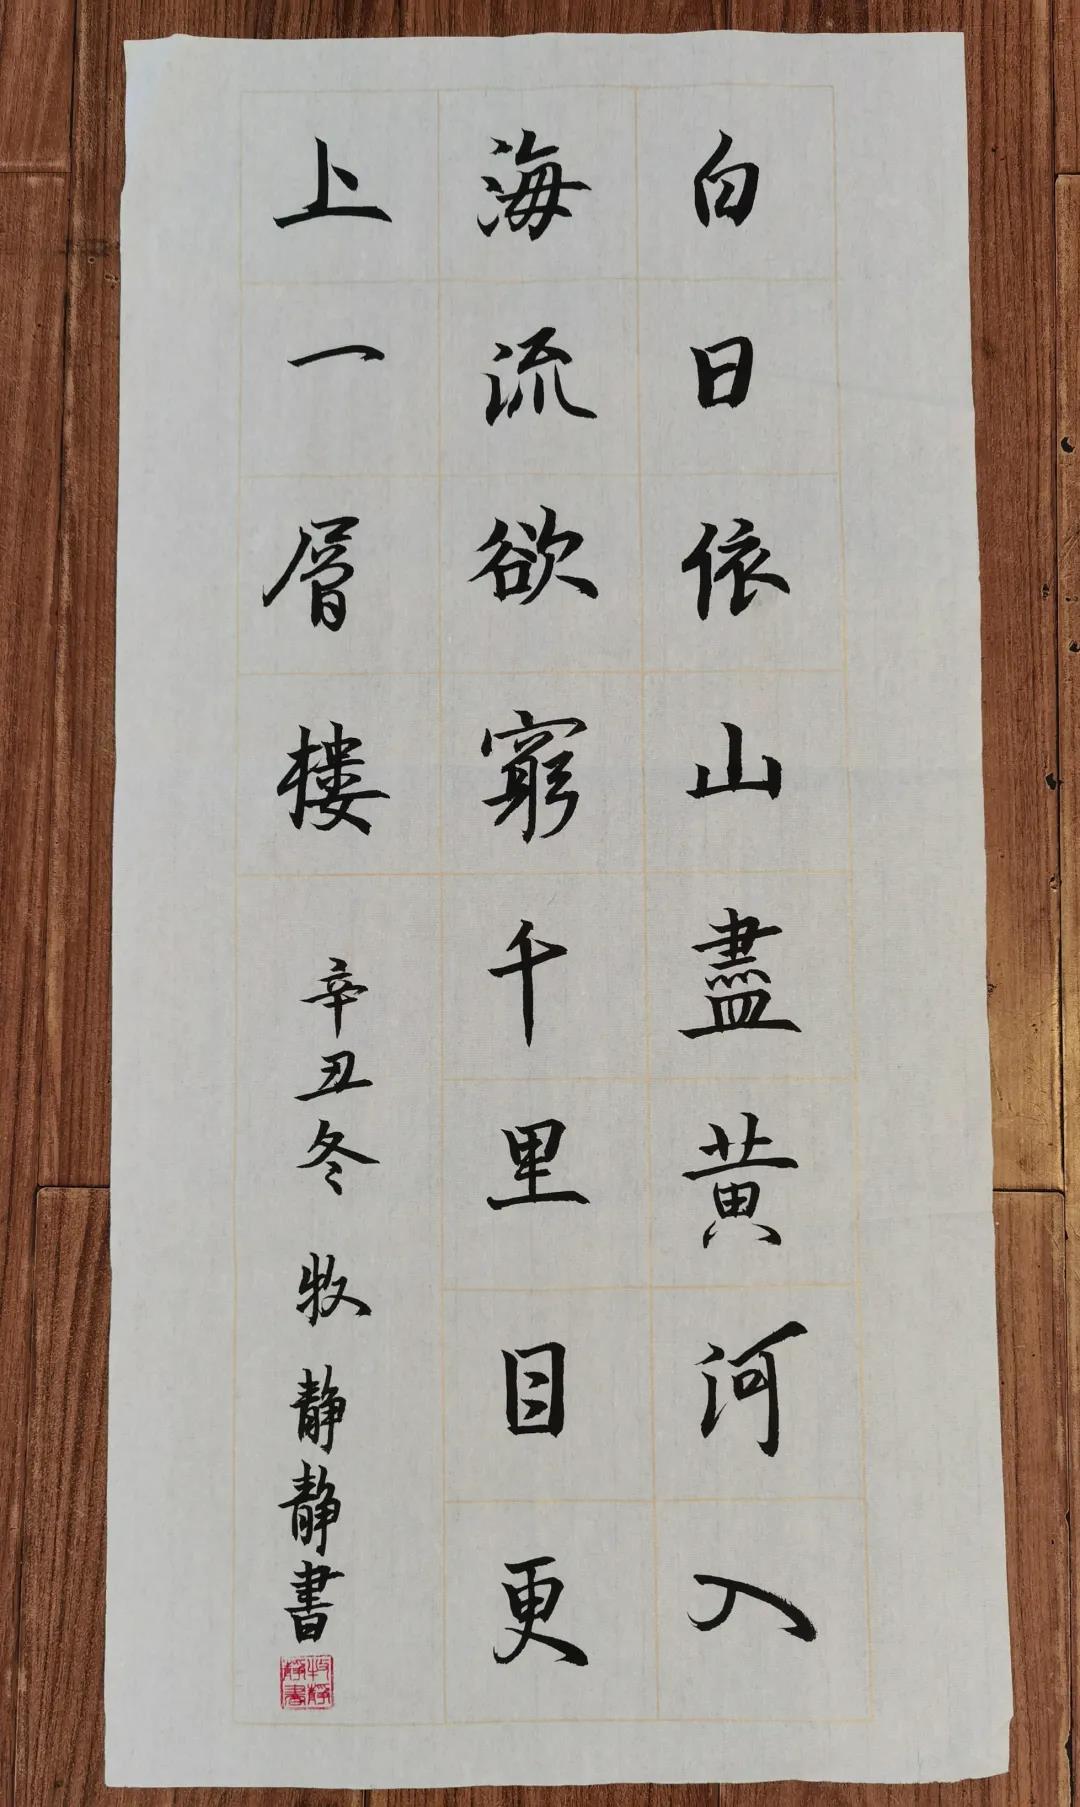 白日依山盡黄河入
海流欲窮千里目更
上一層樓
辛丑冬 牧静静書
牧静静書